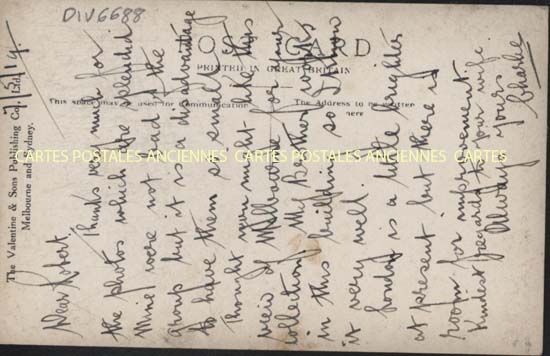 DIV6688
POST CARD
PRINTED IN GREAT BRITAIN
This space may be used for Communication
The Address to be written here
The Valentine & Sons Publishing Co. Ltd.
Melbourne and Sydney.
CARTES POSTALES ANCIENNES CARTES POSTALES ANCIENNES CARTES POSTALES ANCIENNES
7/5/19
Dear Robert.
Thanks very much for
the photos which are splendid
Mine were not bad of the
group but it is a disadvantage
to have them so small. I
thought you might like this
view of Melbourne for your
collection. My Brother works
in this building so I know
it very well.
today is a little brighter
at present but there is
room for improvement.
Kindest regards to your wife
Always yours
Charlie